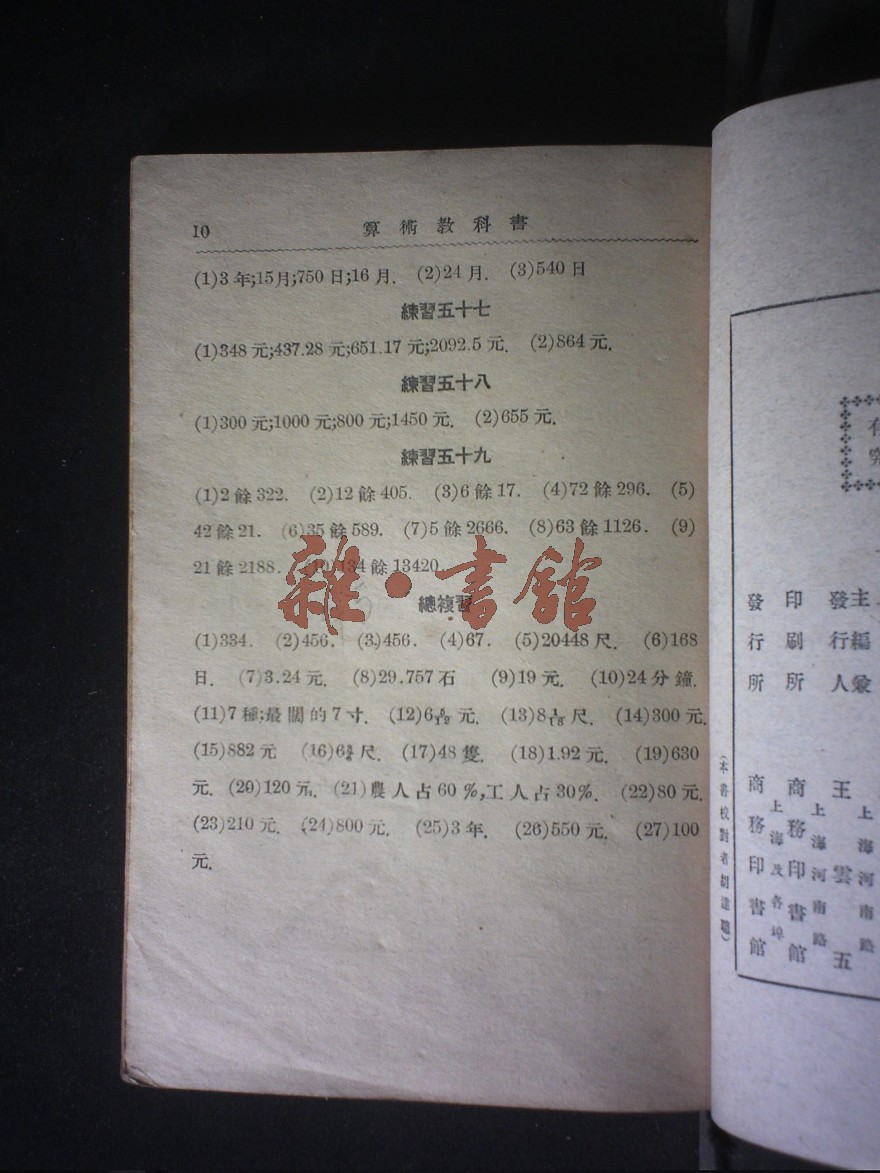 10 算術教科書
(1)3年;15月;750日;16月. (2)24月. (3)540日
練習五十七
(1)348元;437.28元;651.17元;2092.5元. (2)864元.
練習五十八
(1)300元;1000元;800元;1450元. (2)655元.
練習五十九
(1)2餘322. (2)12餘405. (3)6餘17. (4)72餘296. (5)
42餘21. (6)35餘589. (7)5餘2666. (8)63餘1126. (9)
21餘2188. 134餘13420.
雜·書館
總複習
(1)334. (2)456. (3)456. (4)67. (5)20448尺. (6)168
日. (7)3.24元. (8)29.757石 (9)19元. (10)24分鐘.
(11)7種;最闊的7寸. (12)6 元. (13)8 尺. (14)300元.
(15)882元 (16)6 尺. (17)48隻. (18)1.92元. (19)630
元. (20)120元. (21)農人占60%,工人占30%. (22)80元.
(23)210元. (24)800元. (25)3年. (26)550元. (27)100
元.
主編兼發行人 王雲五
上海河南路
印刷所 商務印書館
上海河南路
發行所 商務印書館
上海及各埠
(本書校對者胡達聰)